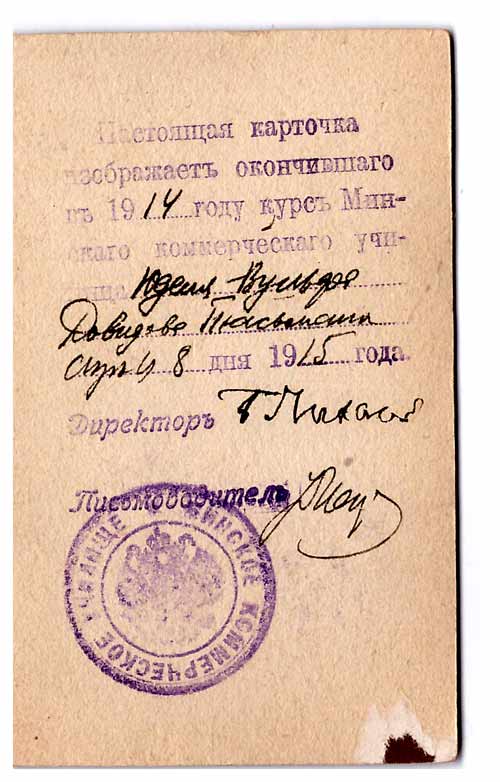 Настоящая карточка
изображаетъ окончившаго
въ 1914 году курсъ Мин-
скаго коммерческаго учи-
лища Юделя Вульфа
Давидова
8 дня 1915 года.
Директоръ
Письмоводитель
МИНСКОЕ КОММЕРЧЕСКОЕ УЧИЛИЩЕ